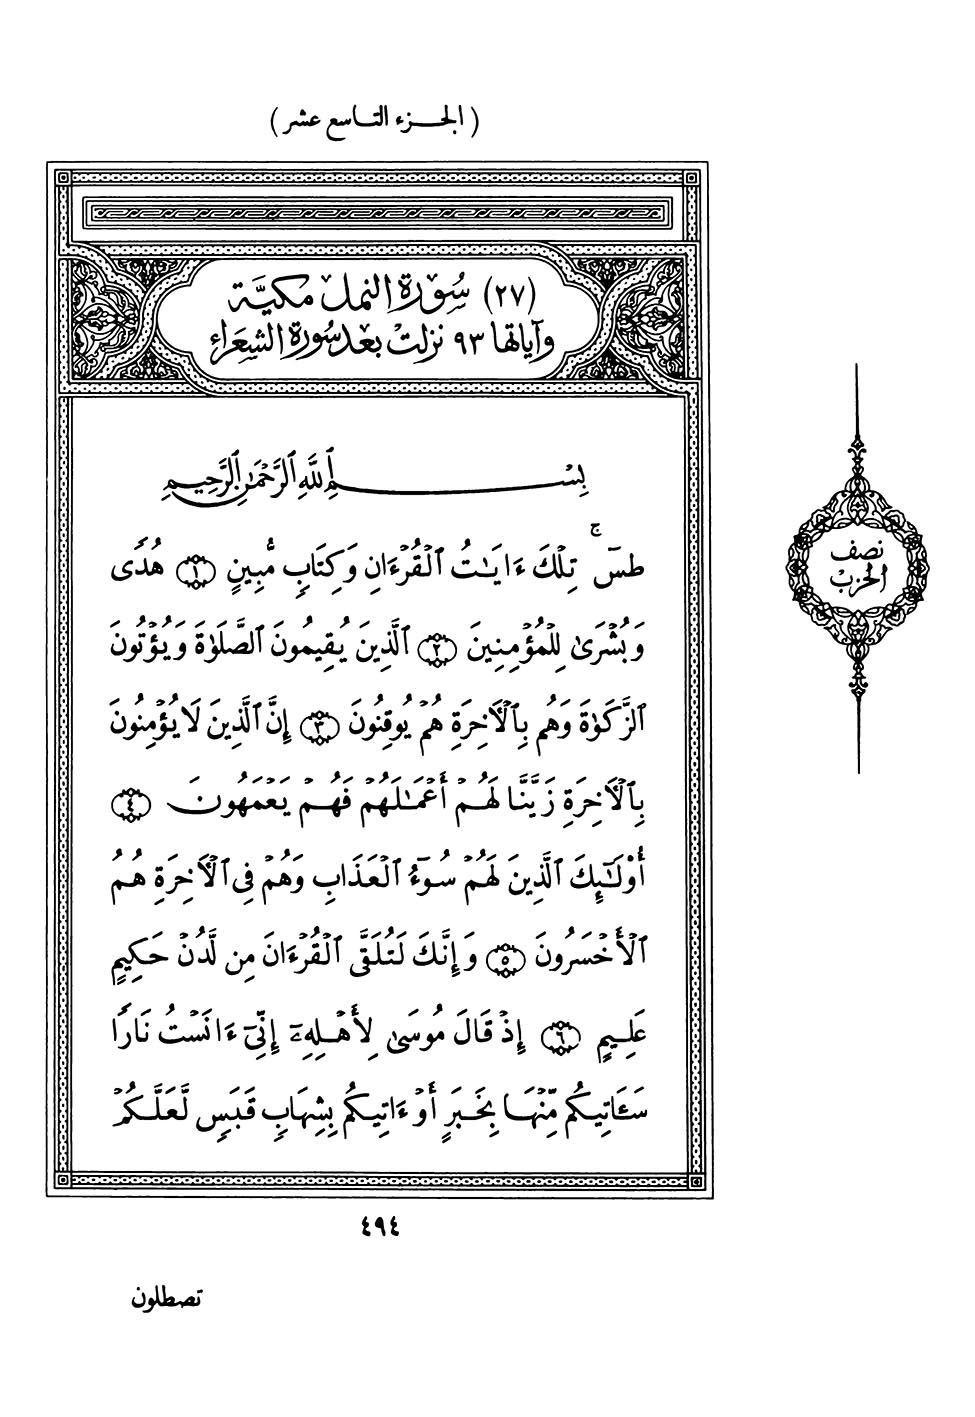 ( الجزء التاسع عشر )
(٢٧) سُورَة النمل مكيَّة
وآياتها ٩٣ نزلتْ بعد سُورة الشعَراء
بِسْمِ ٱللَّهِ ٱلرَّحْمَٰنِ ٱلرَّحِيمِ
طسٓ ۚ تِلْكَ ءَايَٰتُ ٱلْقُرْءَانِ وَكِتَابٍ مُّبِينٍ ١ هُدًى
وَبُشْرَىٰ لِلْمُؤْمِنِينَ ٢ ٱلَّذِينَ يُقِيمُونَ ٱلصَّلَوٰةَ وَيُؤْتُونَ
ٱلزَّكَوٰةَ وَهُم بِٱلْأَخِرَةِ هُمْ يُوقِنُونَ ٣ إِنَّ ٱلَّذِينَ لَا يُؤْمِنُونَ
بِٱلْأَخِرَةِ زَيَّنَّا لَهُمْ أَعْمَٰلَهُمْ فَهُمْ يَعْمَهُونَ ٤
أُوْلَٰٓئِكَ ٱلَّذِينَ لَهُمْ سُوٓءُ ٱلْعَذَابِ وَهُمْ فِى ٱلْأَخِرَةِ هُمُ
ٱلْأَخْسَرُونَ ٥ وَإِنَّكَ لَتُلَقَّى ٱلْقُرْءَانَ مِن لَّدُنْ حَكِيمٍ
عَلِيمٍ ٦ إِذْ قَالَ مُوسَىٰ لِأَهْلِهِۦٓ إِنِّىٓ ءَانَسْتُ نَارًا
سَـَٔاتِيكُم مِّنْهَا بِخَبَرٍ أَوْ ءَاتِيكُم بِشِهَابٍ قَبَسٍ لَّعَلَّكُمْ
نصف
الحزبْ
٤٩٤
تصطلون